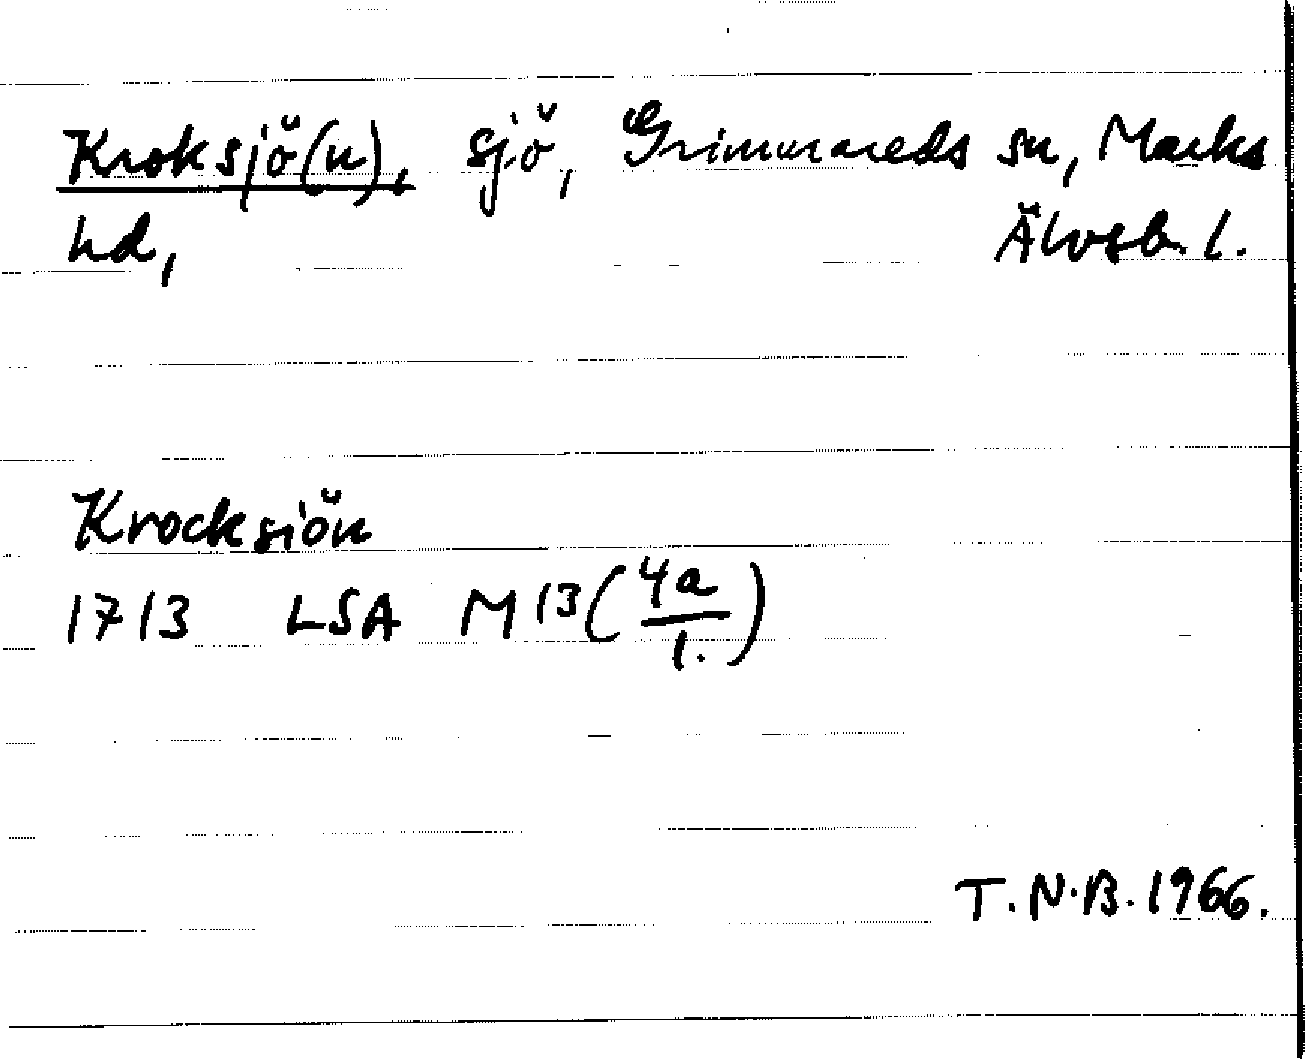 Kroksjö(n), sjö, Grimmareds sn, Marks
hd, Älvsb. l.
Krocksiön
1713 LSA M13(4a/1.)
T.N.B. 1966.